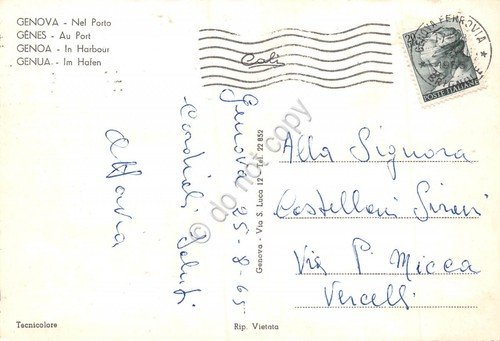 GENOVA - Nel Porto
GÊNES - Au Port
GENOA - In Harbour
GENUA - Im Hafen
GENOVA FERROVIA
POSTE ITALIANE
Genova 25-8-65
Cordiali Saluti
Genova - Via S. Luca 12 - Tel. 22 852
do not copy
Alla Signora
Castellani
Via P. Micca
Vercelli
Tecnicolore
Rip. Vietata